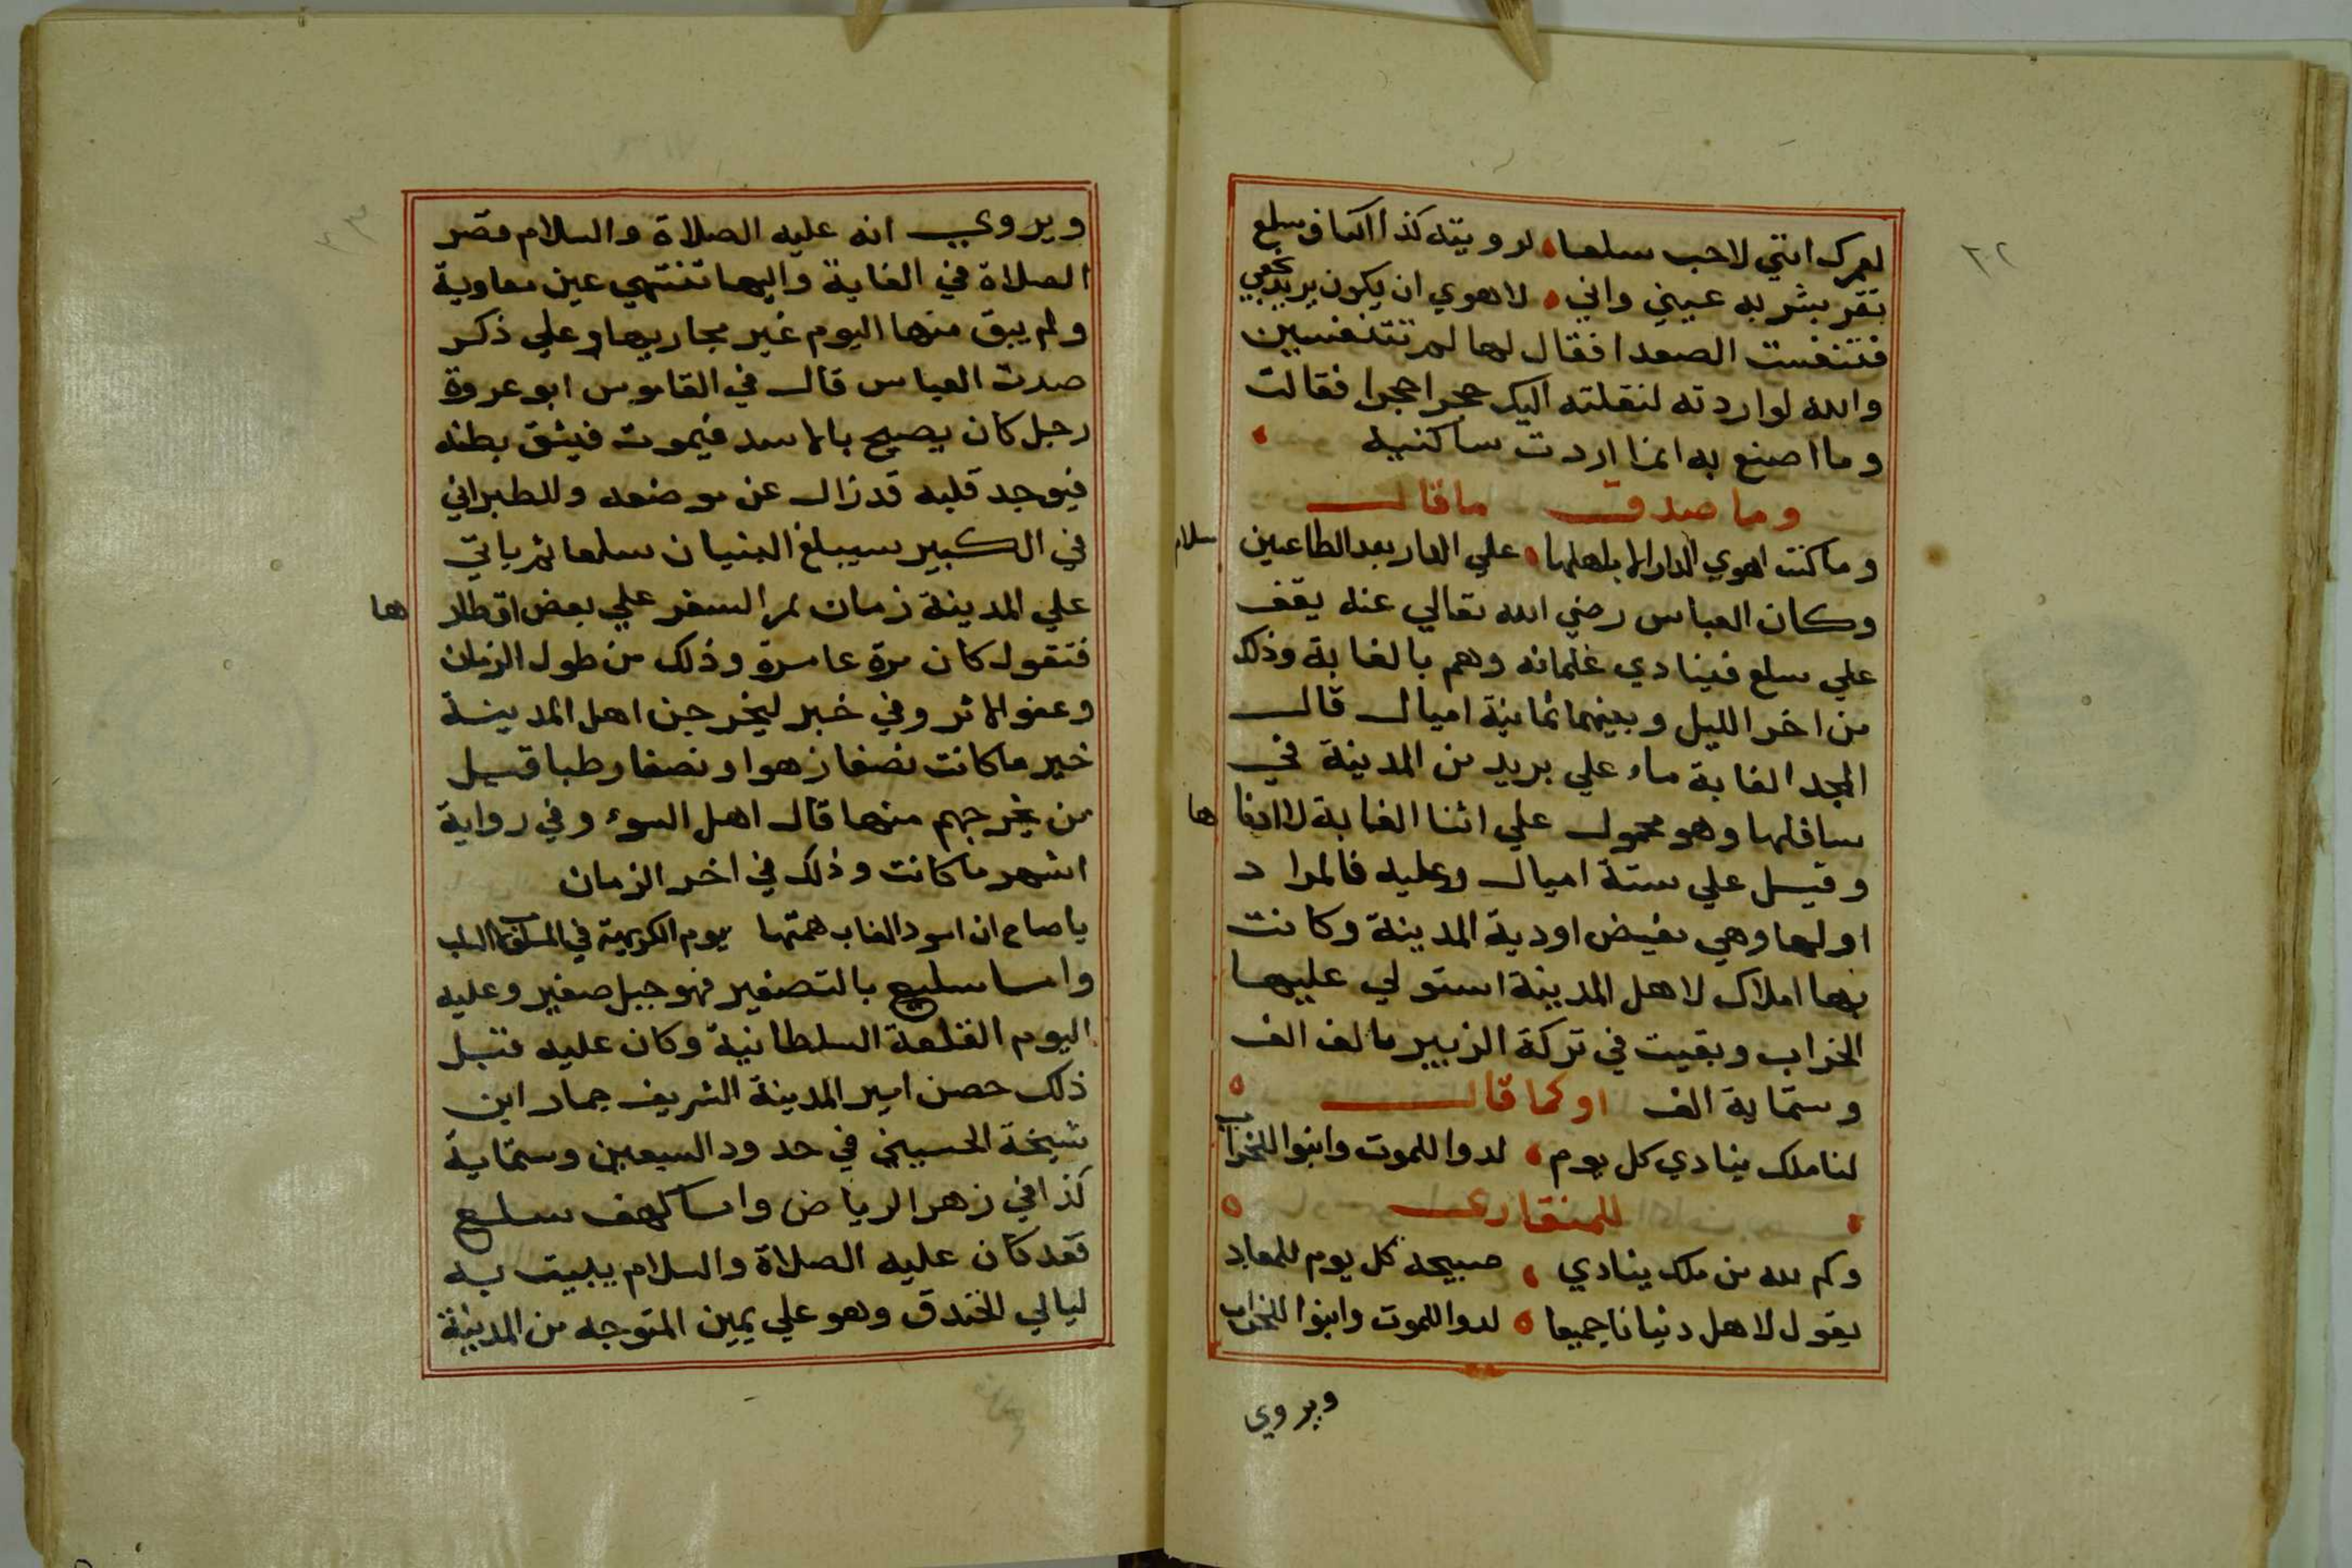 ٣٢
لعمرك انني لاحب سلعا لرويته كذا اكناف سلع
تقر بشربه عيني واني لاهوي ان يكون يريد نجعي
فتنفست الصعدا فقال لها لم تتنفسين
والله لو اردته لنقلته اليك حجرا حجرا فقالت
وما اصنع به انما اردت ساكنيه
وما صدق ما قال
وما كنت اهوي الدار الا باهلها علي الدار بعد الظاعنين سلام
وكان العباس رضي الله تعالي عنه يقف
علي سلع فينادي غلمانه وهم بالغابة وذلك
من اخر الليل وبينهما ثمانية اميال قال
المجد الغابة ماء علي بريد من المدينة في
سافلها وهو محمول علي اثنا الغابة لا ادناها
وقيل علي ستة اميال وعليه فالمراد
اولها وهي مغيض اودية المدينة وكانت
بها املاك لاهل المدينة استولي عليها
الخراب وبقيت في تركة الزبير بالف الف
وستماية الف او كما قال
لنا ملك ينادي كل يوم لدوا للموت وابنوا للخراب
للمنقاري
وكم لله من ملك ينادي صبيحة كل يوم للعباد
يقول لاهل دنيانا جميعا لدوا للموت وابنوا للخراب
ويروي
٣٣
ويروي انه عليه الصلاة والسلام قصر
الصلاة في الغابة واليها تنتهي عين معاوية
ولم يبق منها اليوم غير مجاريها وعلي ذكر
صوت العباس قال في القاموس ابو عروة
رجل كان يصيح بالاسد فيموت فيشق بطنه
فيوجد قلبه قد زال عن موضعه وللطبراني
في الكبير سيبلغ البنيان سلعا ثم ياتي
علي المدينة زمان يمر السفر علي بعض اقطارها
فتقول كان مرة عامرة وذلك من طول الزمان
وعفو الاثر وفي خبر ليخرجن اهل المدينة
خير ما كانت نصفا زهوا ونصفا رطبا قيل
من يخرجهم منها قال اهل السوء وفي رواية
اشهر ما كانت وذلك في اخر الزمان
يا صاح ان اسود الغاب همتها يوم الكريهة في المسلوب لا السلب
واما سليع بالتصغير فهو جبل صغير وعليه
اليوم القلعة السلطانية وكان عليه قبل
ذلك حصن امير المدينة الشريف جماز ابن
شيخة الحسيني في حدود السبعين وستماية
كذا في زهر الرياض واما كهف سلع
فقد كان عليه الصلاة والسلام يبيت به
ليالي الخندق وهو علي يمين المتوجه من المدينة